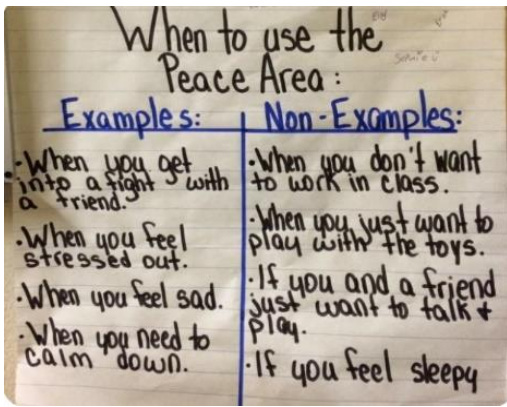 When to use the
Peace Area:
Examples:
·When you get
into a fight with
a friend.
·When you feel
stressed out.
·When you feel sad.
·When you need to
calm down.
Non-Examples:
·When you don't want
to work in class.
·When you just want to
play with the toys.
·If you and a friend
just want to talk &
play.
·If you feel sleepy